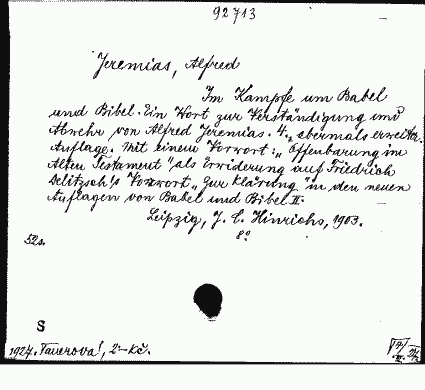 92713
Jeremias, Alfred
Im Kampfe um Babel
und Bibel. Ein Wort zur Verständigung und
Abwehr von Alfred Jeremias. 4., abermals erweiter.
Auflage. Mit einem Vorwort: „Offenbarung im
Alten Testament" als Erwiderung auf Friedrich
Delitzsch's Vorwort „Zur Klärung" in den neuen
Auflagen von Babel und Bibel II.
Leipzig, J. C. Hinrichs, 1903.
8°
52s.
S
1924. Tauerova!, 2-Kč.